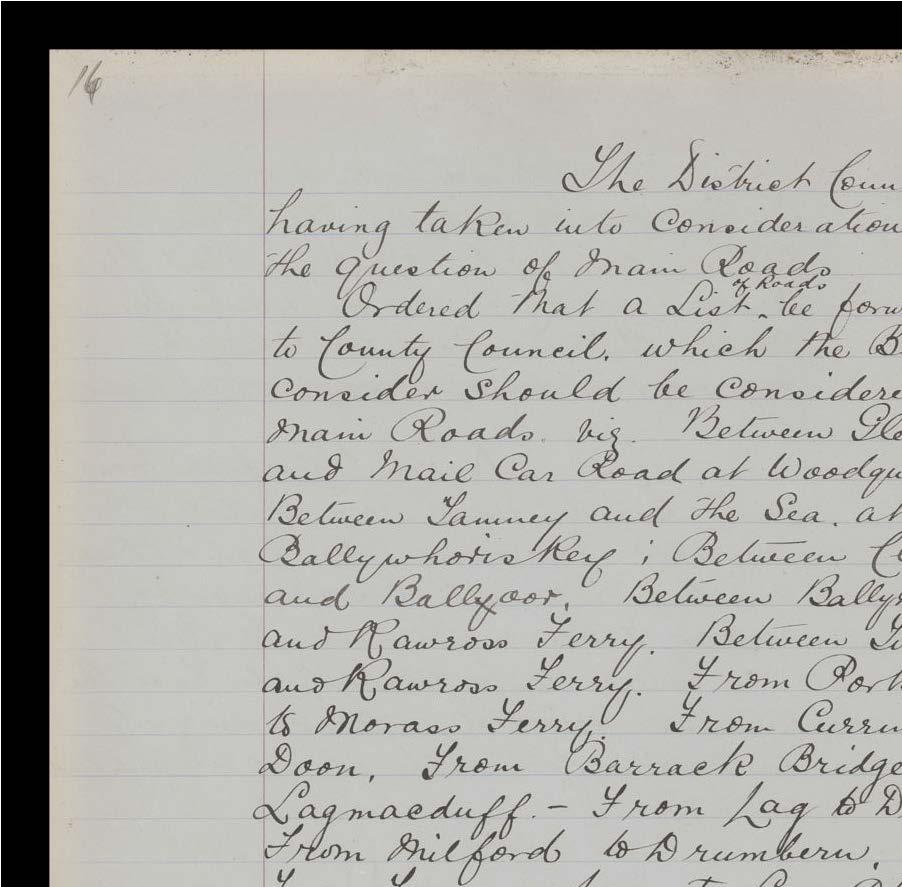 16
The District Coun
having taken into consideration
the question of Main Roads
of Roads
Ordered that a List be forw
to County Council, which the B
consider should be considere
Main Roads. viz. Between Gle
and Mail Car Road at Woodqu
Between Tamney and the Sea, at
Ballywhoriskey ; Between C
and Ballyoor, Between Ballyr
and Rawross Ferry. Between
and Rawross Ferry. From Port
to Morass Ferry. From Curru
Doon, From Barrack Bridge
Lagmacduff. – From Lag to D
From Milford to Drumbern.